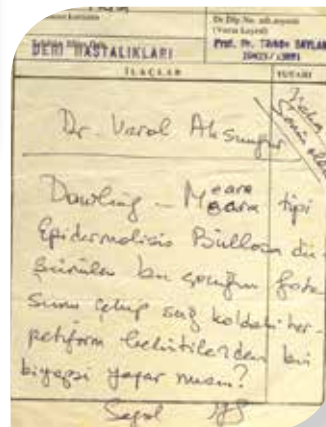 DERİ HASTALIKLARI
Dr. Dip. No.
Prof. Dr. Türkân SAYLAN
İLAÇLAR
TUTARI
Dr. Varol Aksungur
Dowling - Meara tipi
Epidermolisis Büllosa dü-
şünülen bu çocuğun foto
sunu çekip sağ koldaki her-
petiform belirtilerden bir
biyopsi yapar mısın?